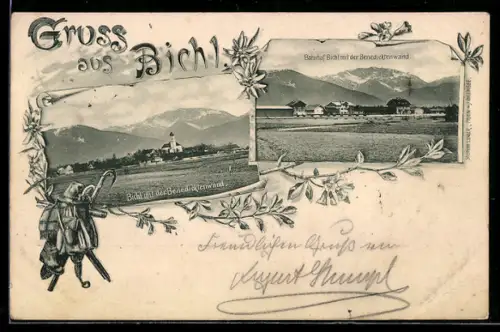 Gruss
aus Bichl.
Bahnhof Bichl mit der Benedictenwand
Bichl mit der Benedictenwand.
Freundlichen Gruß von
August